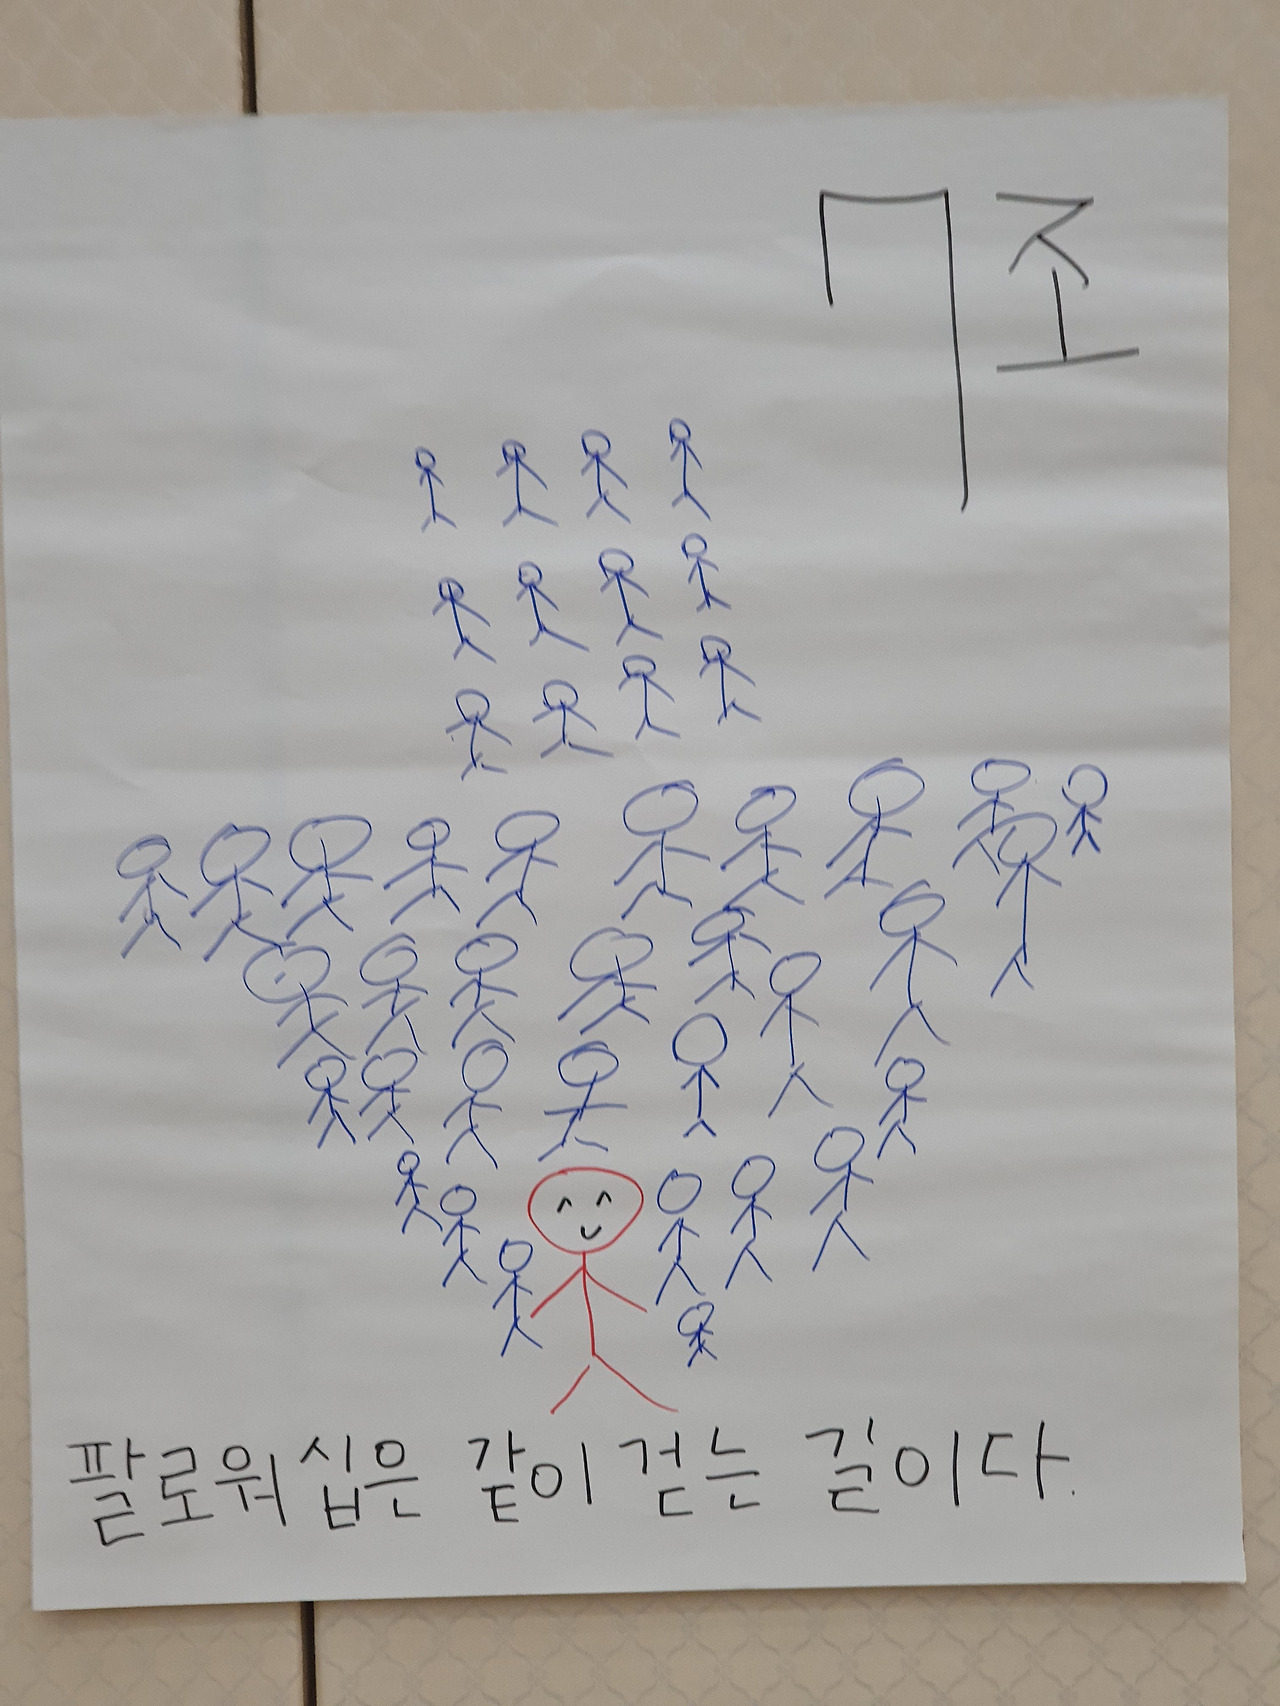 7조
팔로워십은 같이 걷는 길이다.